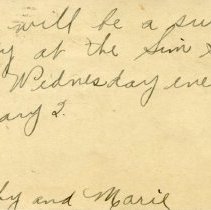 will be a su
y at the Sim
Wednesday eve
ary 2.
by and Marie